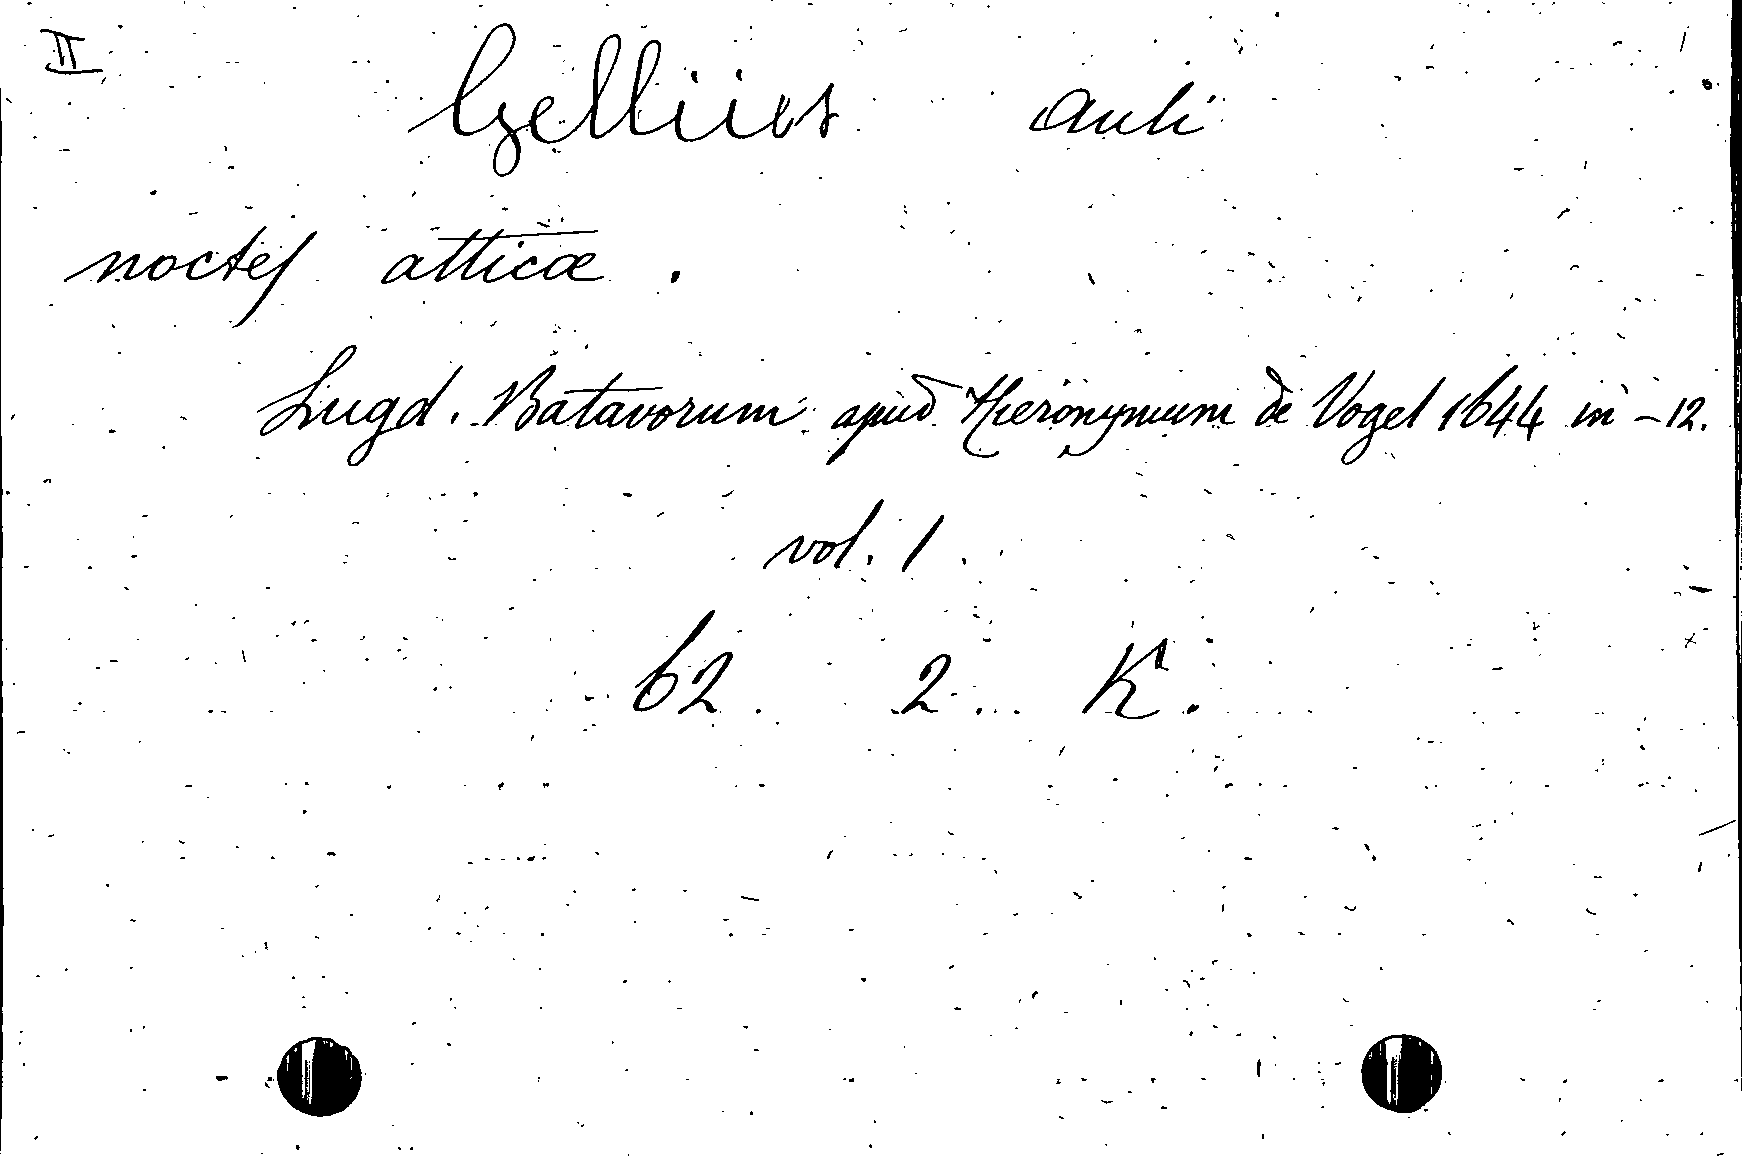 II
Gellius auli
noctes atticæ.
Lugd. Batavorum apud Hieronymum de Vogel 1644 in-12.
vol. 1.
62 2 K.